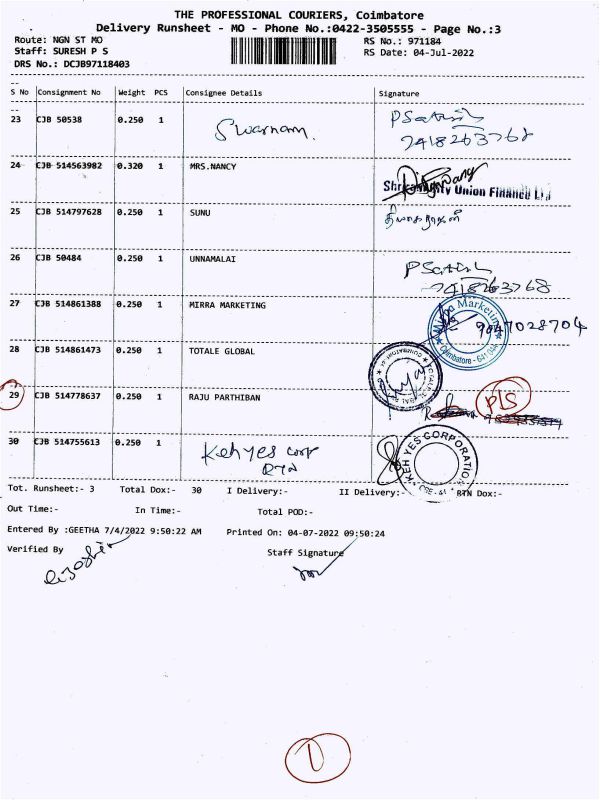 THE PROFESSIONAL COURIERS, Coimbatore
Delivery Runsheet - MO - Phone No.:0422-3505555 - Page No.:3
Route: NGN ST MO RS No.: 971184
Staff: SURESH P S RS Date: 04-Jul-2022
DRS No.: DCJB97118403
S No Consignment No Weight PCS Consignee Details Signature
23 CJB 50538 0.250 1 Swarnam. PSatish
7418263768
24 CJB 514563982 0.320 1 MRS.NANCY
Union Finance Ltd
25 CJB 514797628 0.250 1 SUNU
26 CJB 50484 0.250 1 UNNAMALAI PSatish
7418263768
27 CJB 514861388 0.250 1 MIRRA MARKETING Mirra Marketing 9047028704
Coimbatore - 641 044
28 CJB 514861473 0.250 1 TOTALE GLOBAL
29 CJB 514778637 0.250 1 RAJU PARTHIBAN P/S
30 CJB 514755613 0.250 1 Keh yes corp KEH YES CORPORATION
Tot. Runsheet:- 3 Total Dox:- 30 I Delivery:- II Delivery:- RTN Dox:-
Out Time:- In Time:- Total POD:-
Entered By :GEETHA 7/4/2022 9:50:22 AM Printed On: 04-07-2022 09:50:24
Verified By Staff Signature
1